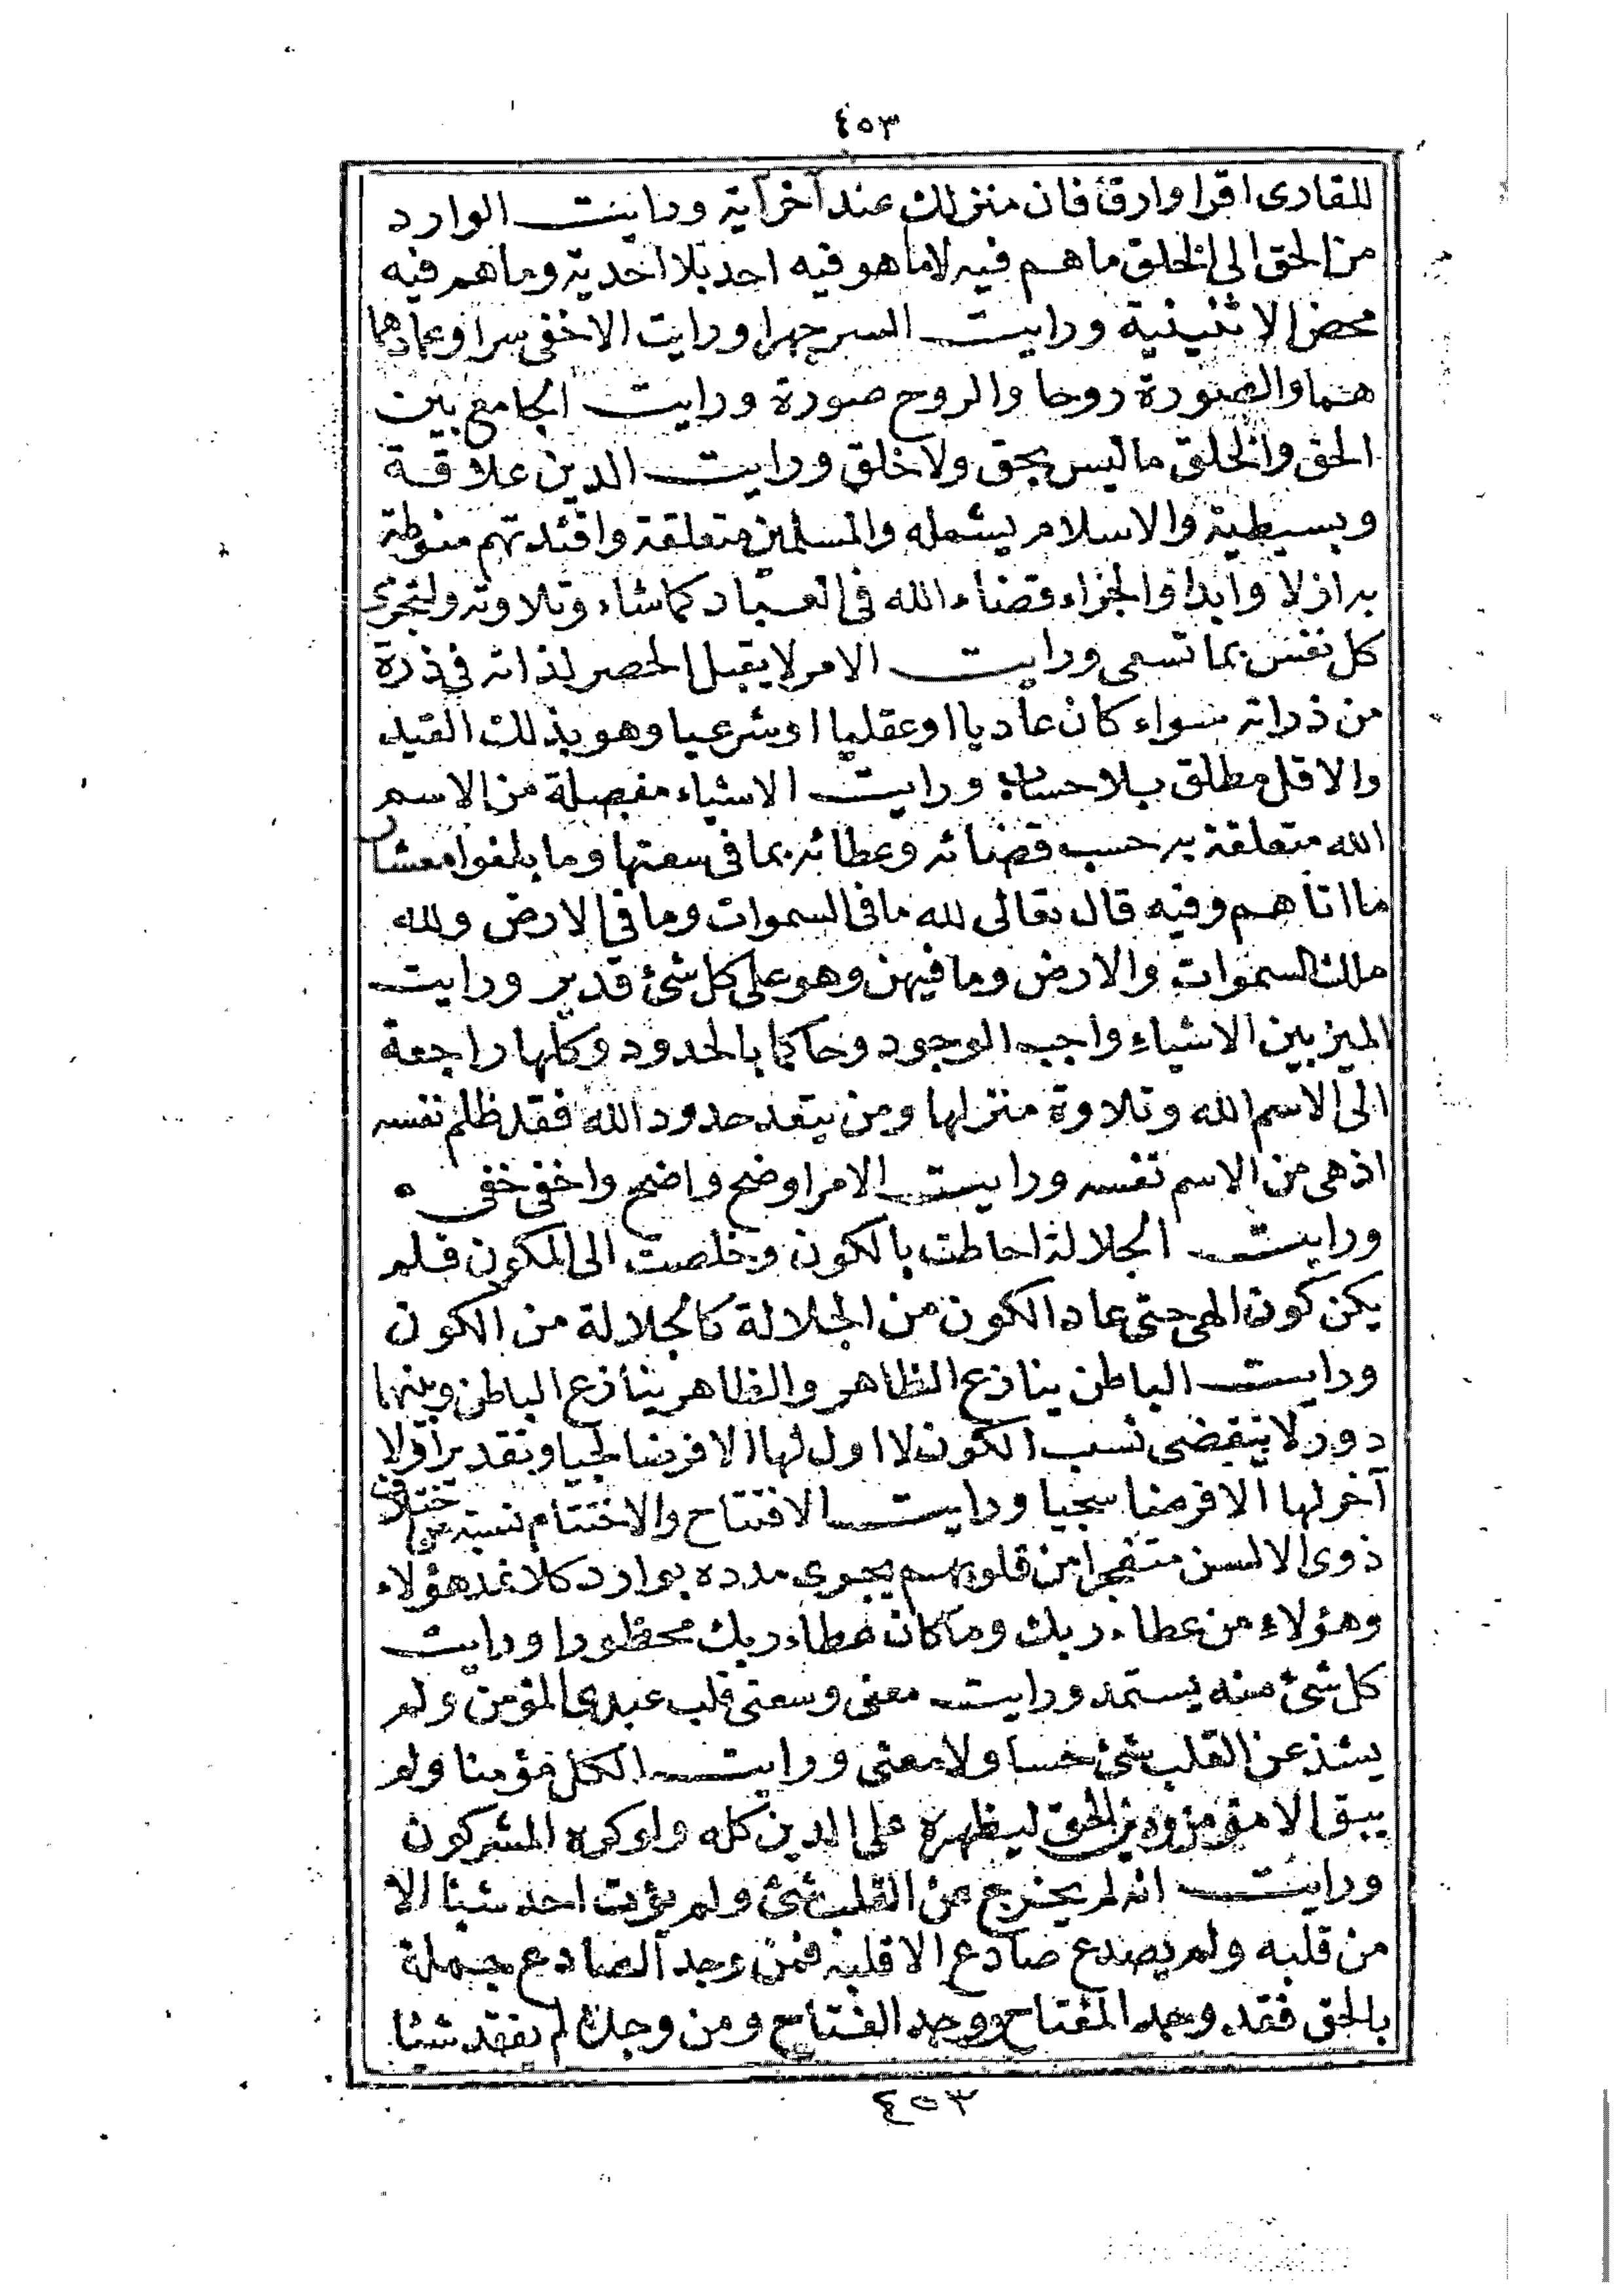 ٤٥٣
للقارى اقرا وارق فان منزلك عند آخر آية ورايت الوارد
من الحق الى الخلق ما هم فيه لا ما هو فيه احد بلا احدية وما هم فيه
محض الاثنينية ورايت السر جهرا ورايت الاخفى سرا وعمادهما
هنما والصورة روحا والروح صورة ورايت الجامع بين
الحق والخلق ما ليس بحق ولا خلق ورايت الدين علاقة
وبسيطية والاسلام يشمله والمسلمين متعلقة وافئدتهم منوطة
به ازلا وابدا والجزاء قضاء الله فى العباد كما شاء وتلاوته ولتجزى
كل نفس بما تسعى ورايت الامر لا يقبل الحصر لذاته فى ذرة
من ذراته سواء كان عاديا او عقليا او شرعيا وهو بذلك القيد
والاقل مطلق بلا حساب ورايت الاشياء مفصلة من الاسم
الله متعلقة به حسب قضائه وعطائه بما فى سعتها وما بلغوا معشار
ما اتاهم وفيه قال تعالى لله ما فى السموات وما فى الارض ولله
ملك السموات والارض وما فيهن وهو على كل شئ قدير ورايت
الميز بين الاشياء واجب الوجود وحاكما بالحدود وكلها راجعة
الى الاسم الله وتلاوة منزلها ومن يتعد حدود الله فقد ظلم نفسه
اذ هى من الاسم نفسه ورايت الامر اوضح واضح واخفى خفى ٠
ورايت الجلالة احاطت بالكون وخلصت الى المكون فلم
يكن كون الهى حتى عاد الكون من الجلالة كالجلالة من الكون
ورايت الباطن ينازع الظاهر والظاهر ينازع الباطن وبينهما
دور لا ينقضى نسب الكون لا اول لها الا فرضا لجيا وتقديرا ولا
آخر لها الا فرضا سجيا ورايت الافتتاح والاختتام نسبته عن اختلاف
ذوى الالسن متفجرا من قلوبهم يجرى مدده بوارد كلا نمد هؤلاء
وهؤلاء من عطاء ربك وما كان عطاء ربك محظورا ورايت
كل شئ منه يستمد ورايت معنى وسعنى قلب عبدى المؤمن ولم
يشذ عن القلب شئ حسا ولا معنى ورايت الكل مؤمنا ولم
يبق الا مؤمن ودين الحق ليظهره على الدين كله ولو كره المشركون
ورايت انه لم يخرج عن القلب شئ ولم يؤت احد شيئا الا
من قلبه ولم يصدع صادع الا قلبه فمن وجد الصادع بجملة
بالحق فقد وجد المفتاح ووجد الفتاح ومن وجدك لم يفقد شيئا
٤٥٣